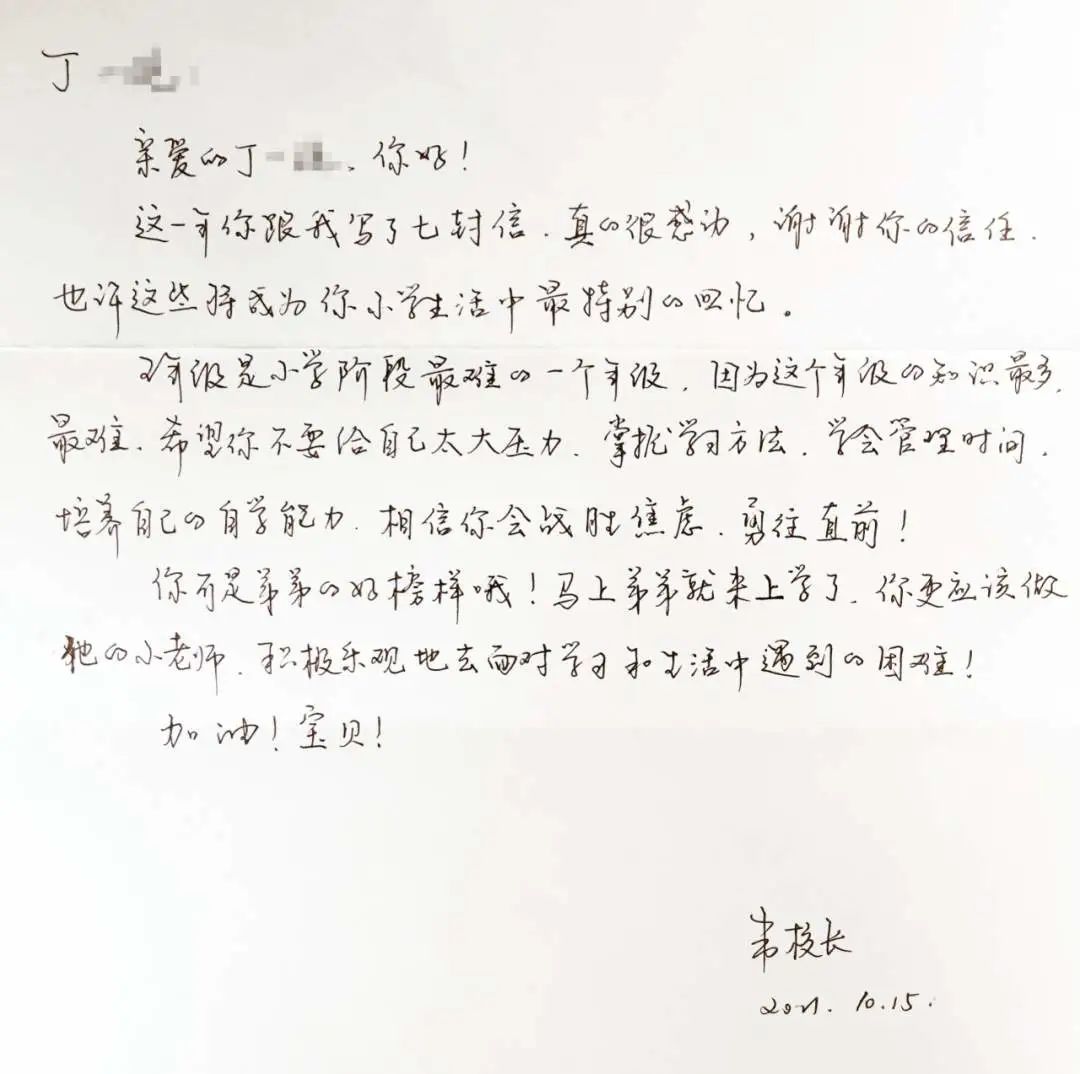 丁
亲爱的丁一 、你好！
这一年你跟我写了七封信．真的很感动，谢谢你的信任．
也许这些将成为你小学生活中最特别的回忆。
五年级是小学阶段最难的一个年级．因为这个年级的知识最多．
最难．希望你不要给自己太大压力．掌握学习方法．学会管理时间．
培养自己的自学能力．相信你会战胜焦虑．勇往直前！
你可是弟弟的好榜样哦！马上弟弟就来上学了．你更应该做
他的小老师．积极乐观地去面对学习和生活中遇到的困难！
加油！宝贝！
校长
2021．10.15．